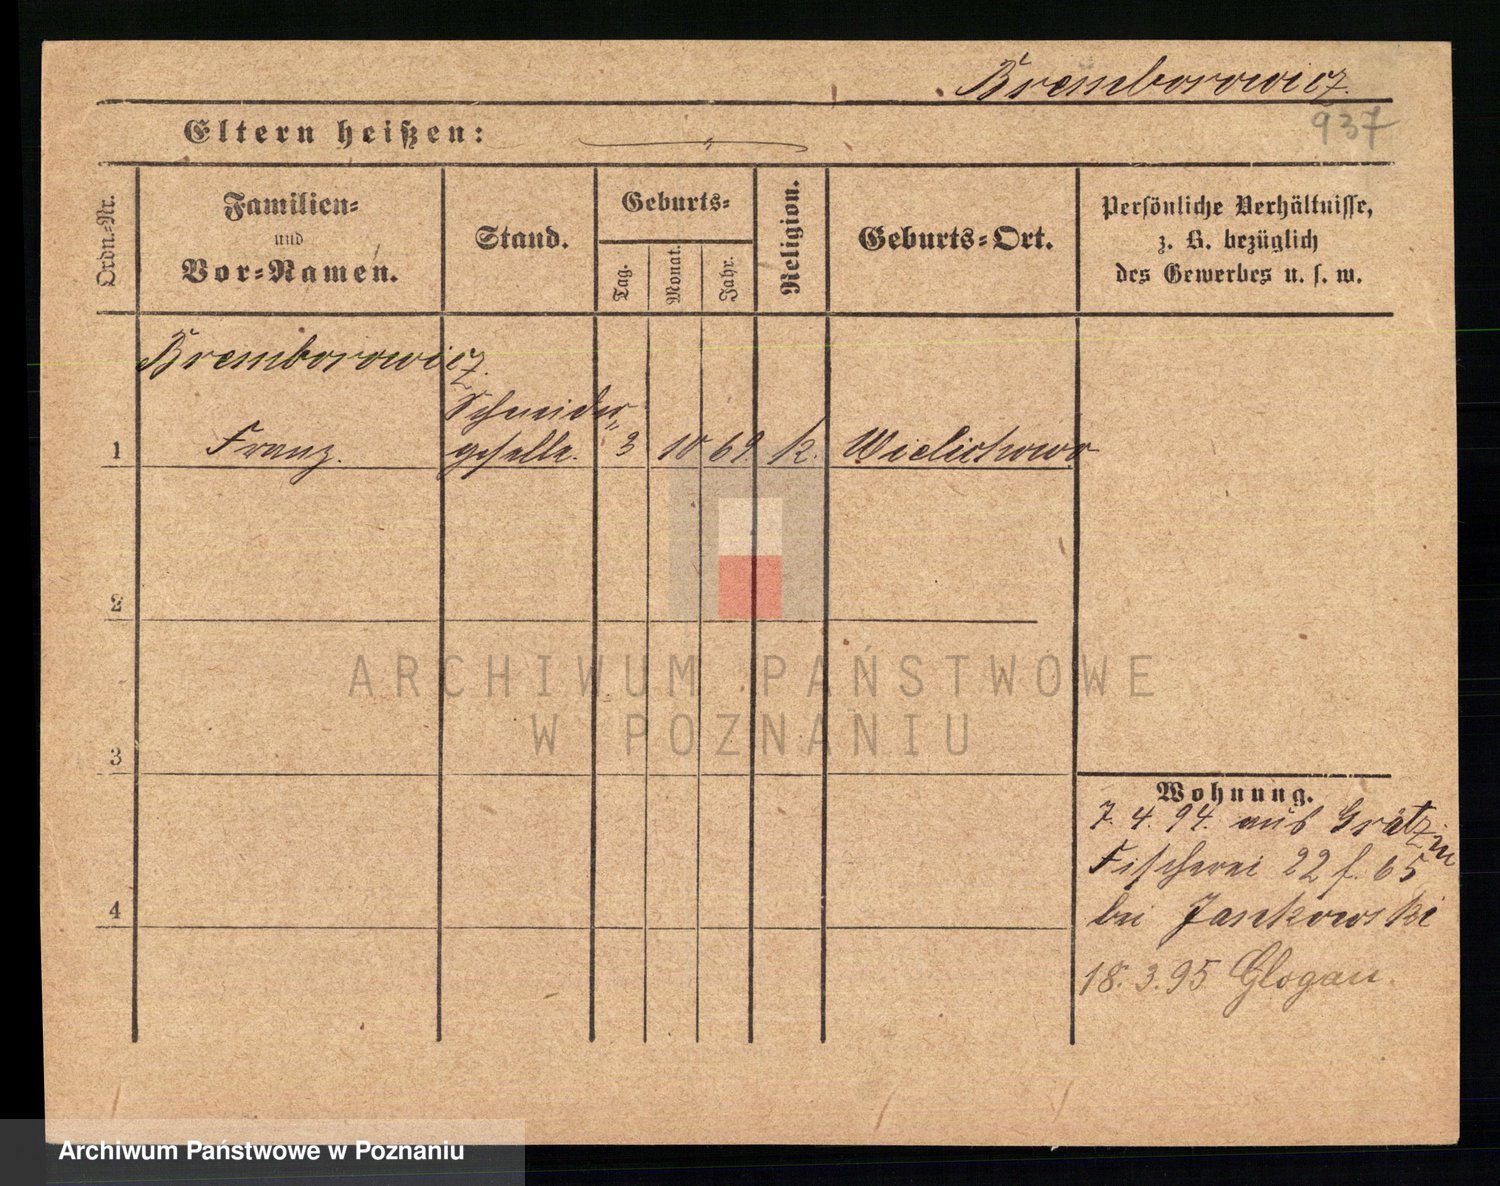 Bremborowicz.
937
Eltern heißen:
Ordn.-Nr.
Familien-
und
Vor-Namen.
Stand.
Geburts-
Tag.
Monat.
Jahr.
Religion.
Geburts-Ort.
Persönliche Verhältnisse,
z. B. bezüglich
des Gewerbes u. s. w.
Bremborowicz.
Schneider„
1 Franz. geselle. 3 10 69 k. Wielichowo
2
3
4
Wohnung.
7. 4. 94. aus Grätz in
Fischerei 22 f. 65
bei Jankowski
18. 3. 95 Glogau.
ARCHIWUM PAŃSTWOWE
W POZNANIU
Archiwum Państwowe w Poznaniu